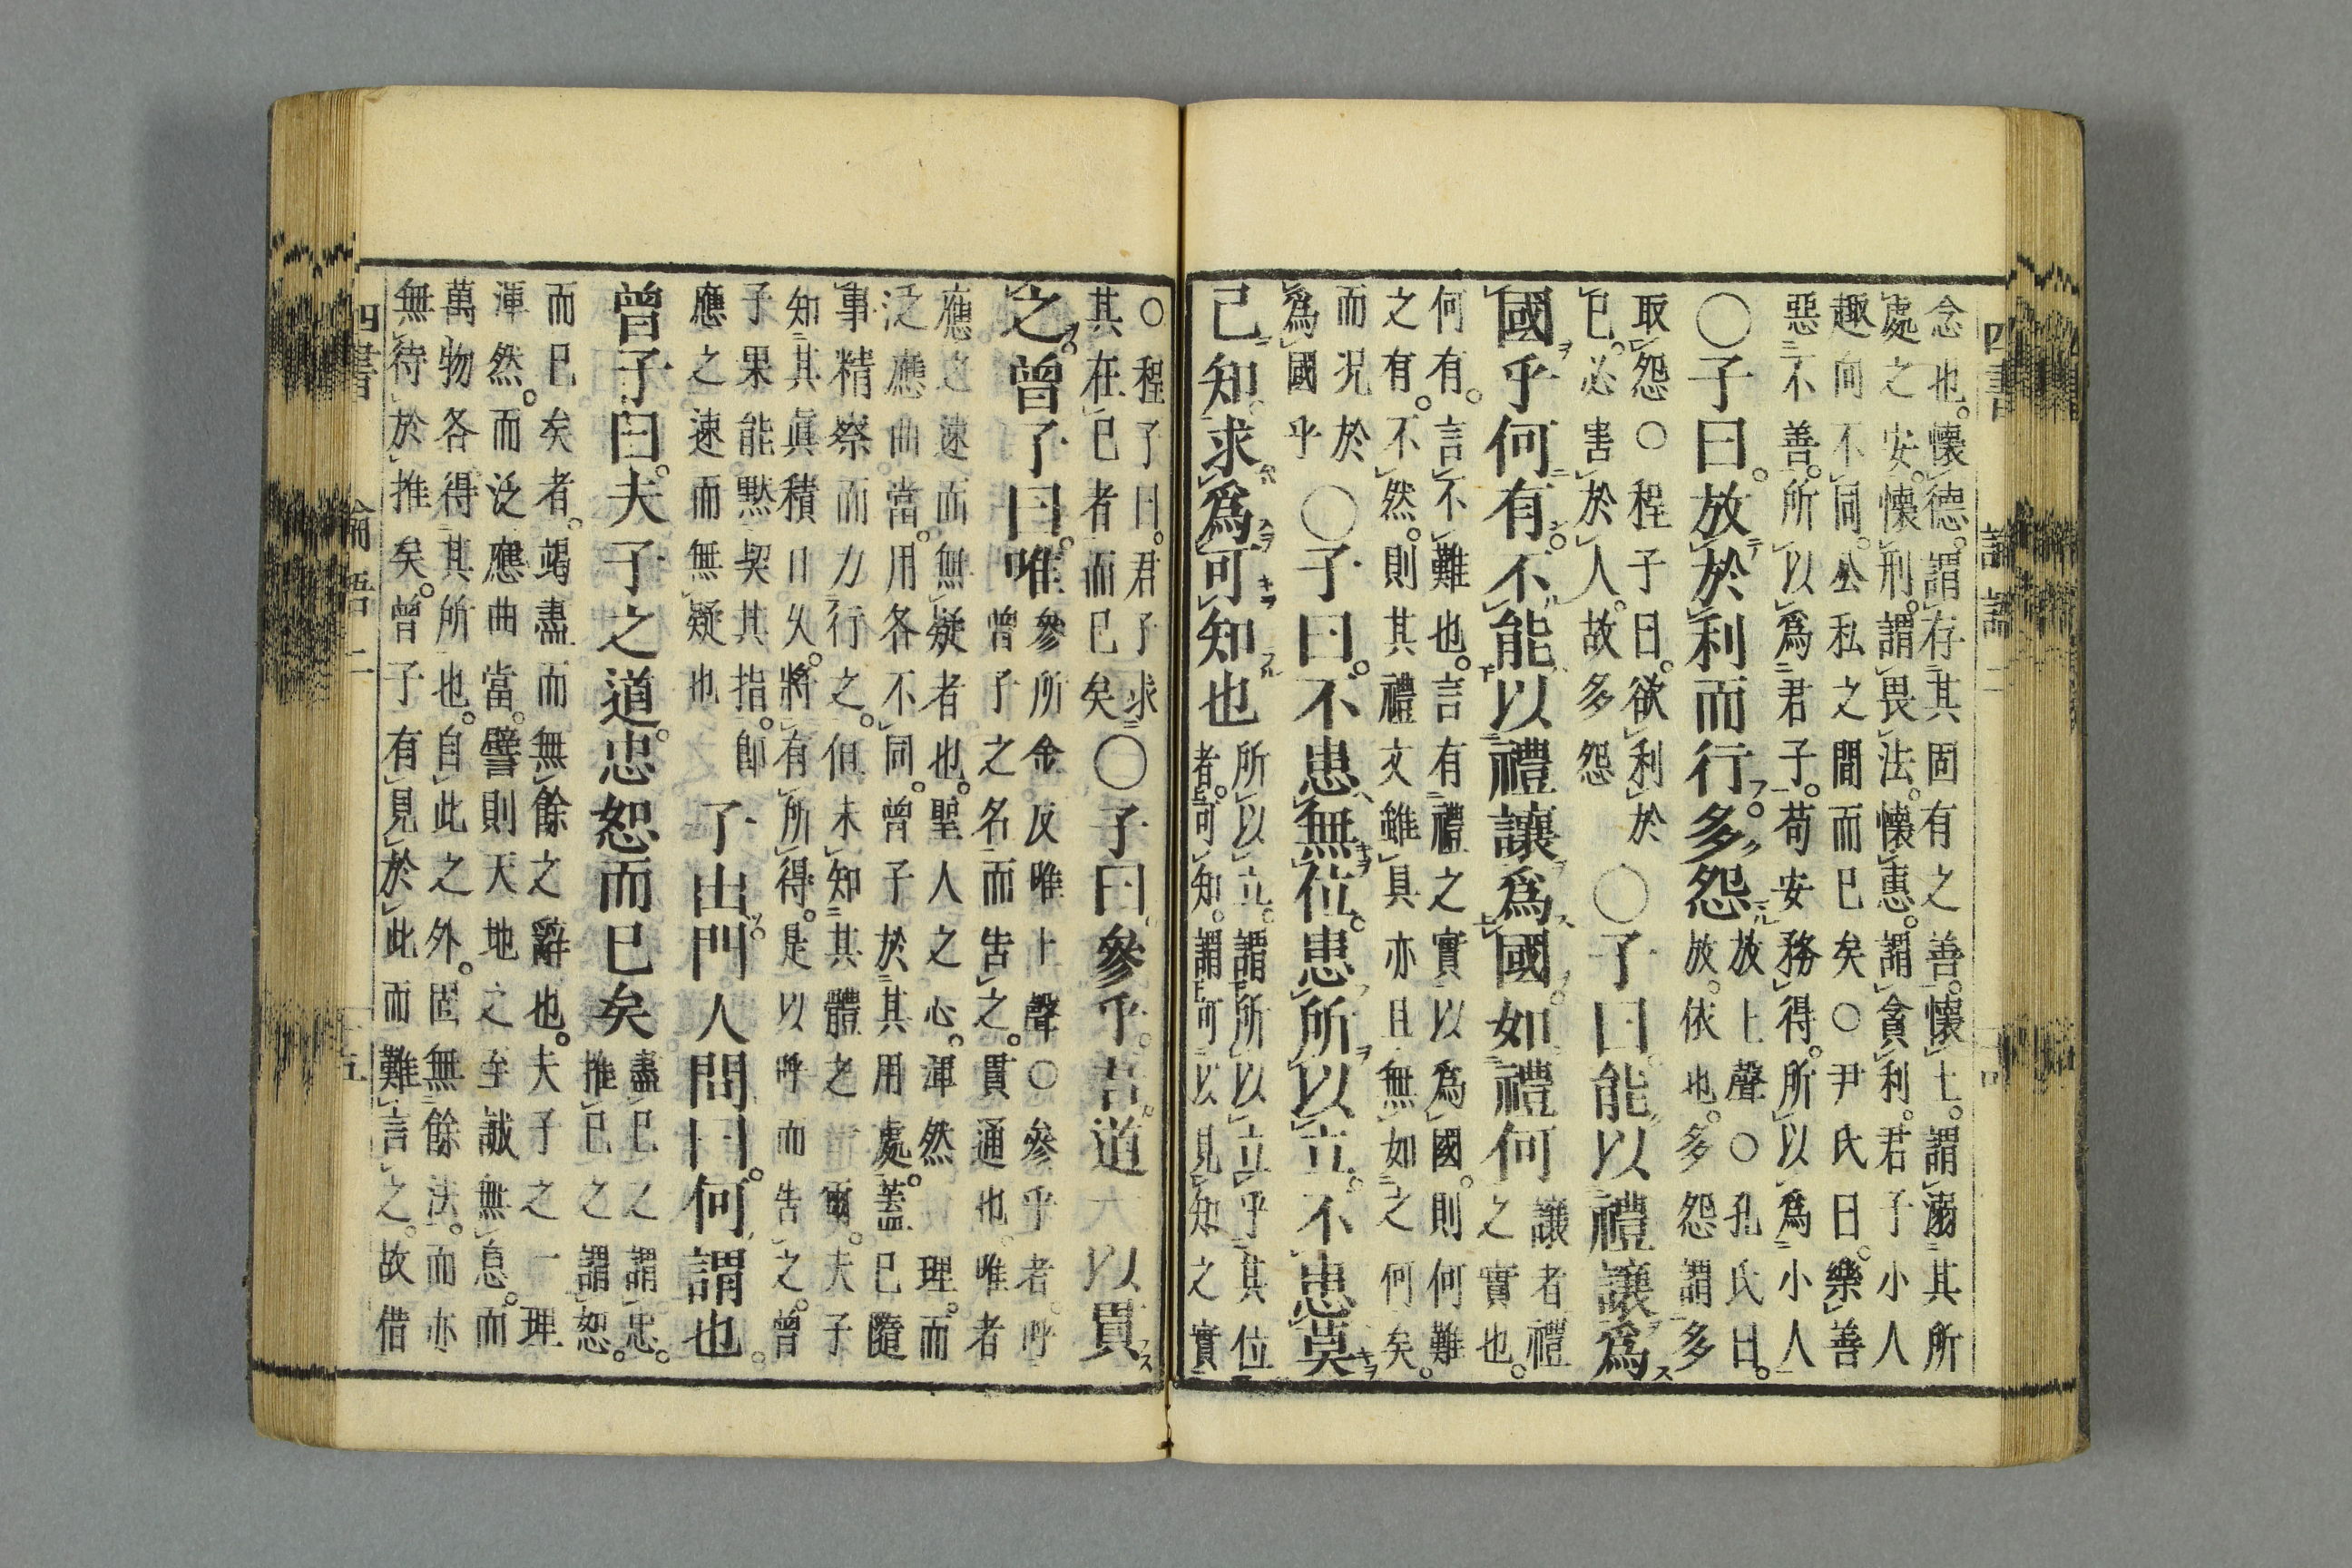 念也。懷德。謂存其固有之善。懷土。謂溺其所
處之安。懷刑。謂畏法。懷惠。謂貪利。君子小人
趣向不同。公私之間而已矣○尹氏曰。樂善
惡不善。所以爲君子。苟安務得。所以爲小人
○子曰。放於利而行。多怨
放上聲○孔氏曰。
放。依也。多怨謂多
取怨○程子曰。欲利於
已。必害於人。故多怨
○子曰。能以禮讓爲
國乎何有。不能以禮讓爲國。如禮何
讓者禮
之實也。
何有。言不難也。言有禮之實以爲國。則何難
之有。不然。則其禮文雖具亦且無如之何矣。
而況於
爲國乎
○子曰。不患無位。患所以立。不患莫
己知。求爲可知也
所以立。謂所以立乎其位
者。可知。謂可以見知之實
○程子曰。君子求
其在已者而已矣
○子曰。參乎。吾道一以貫
之。曾子曰。唯
參所金反唯上聲○參乎者。呼
曾子之名而告之。貫通也。唯者
應之速而無疑者也。聖人之心。渾然一理。而
泛應曲當。用各不同。曾子於其用處。蓋已隨
事精察而力行之。但未知其體之一爾。夫子
知其眞積力久。將有所得。是以呼而告之。曾
子果能默契其指。即
應之速而無疑也
子出。門人問曰。何謂也。
曾子曰。夫子之道。忠恕而已矣
盡已之謂忠。
推已之謂恕。
而已矣者。竭盡而無餘之辭也。夫子之一理
渾然。而泛應曲當。譬則天地之至誠無息。而
萬物各得其所也。自此之外。固無餘法。而亦
無待於推矣。曾子有見於此而難言之。故借
四書 論語二 十五